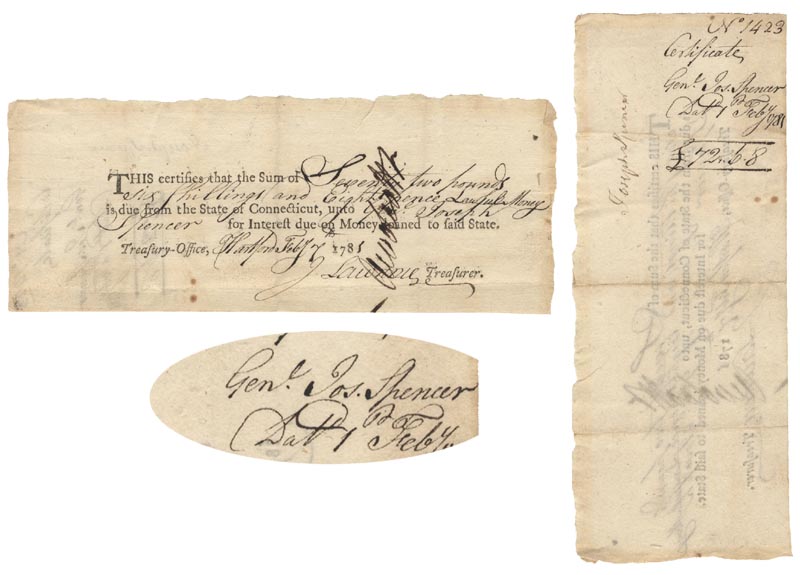 THIS certifies that the Sum of Seventy two pounds
six shillings and Eight pence Lawful Money
is due from the State of Connecticut, unto Joseph
Spencer for Interest due on Money loaned to said State.
Treasury-Office, Hartford Feby 7th 1781
J Lawrence Treasurer.
Genl. Jos. Spencer
Datd 1 Feby
No 1423
Certificate
Genl. Jos. Spencer
Datd 1 Feby 1781
£72..6..8
Joseph Spencer